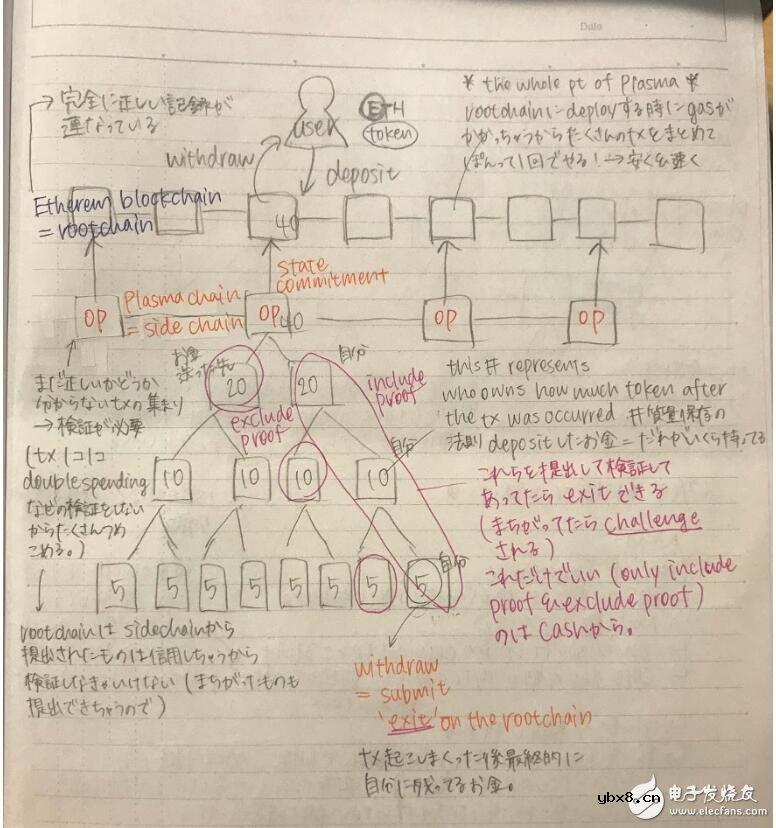 Date
→完全に正しい記録が
連なっている
user
ETH
token
withdraw
deposit
* the whole pt of Plasma *
rootchainにdeployする時にgasが
かかっちゃうからたくさんのtxをまとめて
ぽんって1回でやる!→安く&速く
Ethereum blockchain
= rootchain
40
State
commitment
OP
Plasma chain
= side chain
OP 40
OP
OP
お金
送った先
自分
20
20
include
proof
exclude
proof
まだ正しいかどうか
分からないtxの集まり
→検証が必要
(tx 1コ1コ
double spending
などの検証をしない
からたくさんつめ
こめる。)
this # represents
who owns how much token after
the tx was occurred #質量保存の
法則 depositしたお金=だれがいくら持ってる
自分
10
10
10
10
これらを提出して検証して
あってたら exitできる
(まちがってたら challenge
される)
これだけでいい (only include
proof & exclude proof)
のは Cashから。
自分
5
5
5
5
5
5
5
5
rootchainは sidechainから
提出されたものは信用しちゃうから
検証しなきゃいけない (まちがったものも
提出できちゃうので)
withdraw
= submit
'exit' on the rootchain
tx起こしまくった後最終的に
自分に残ってるお金。
ybx8.cn
电子发烧友
www.elecfans.com